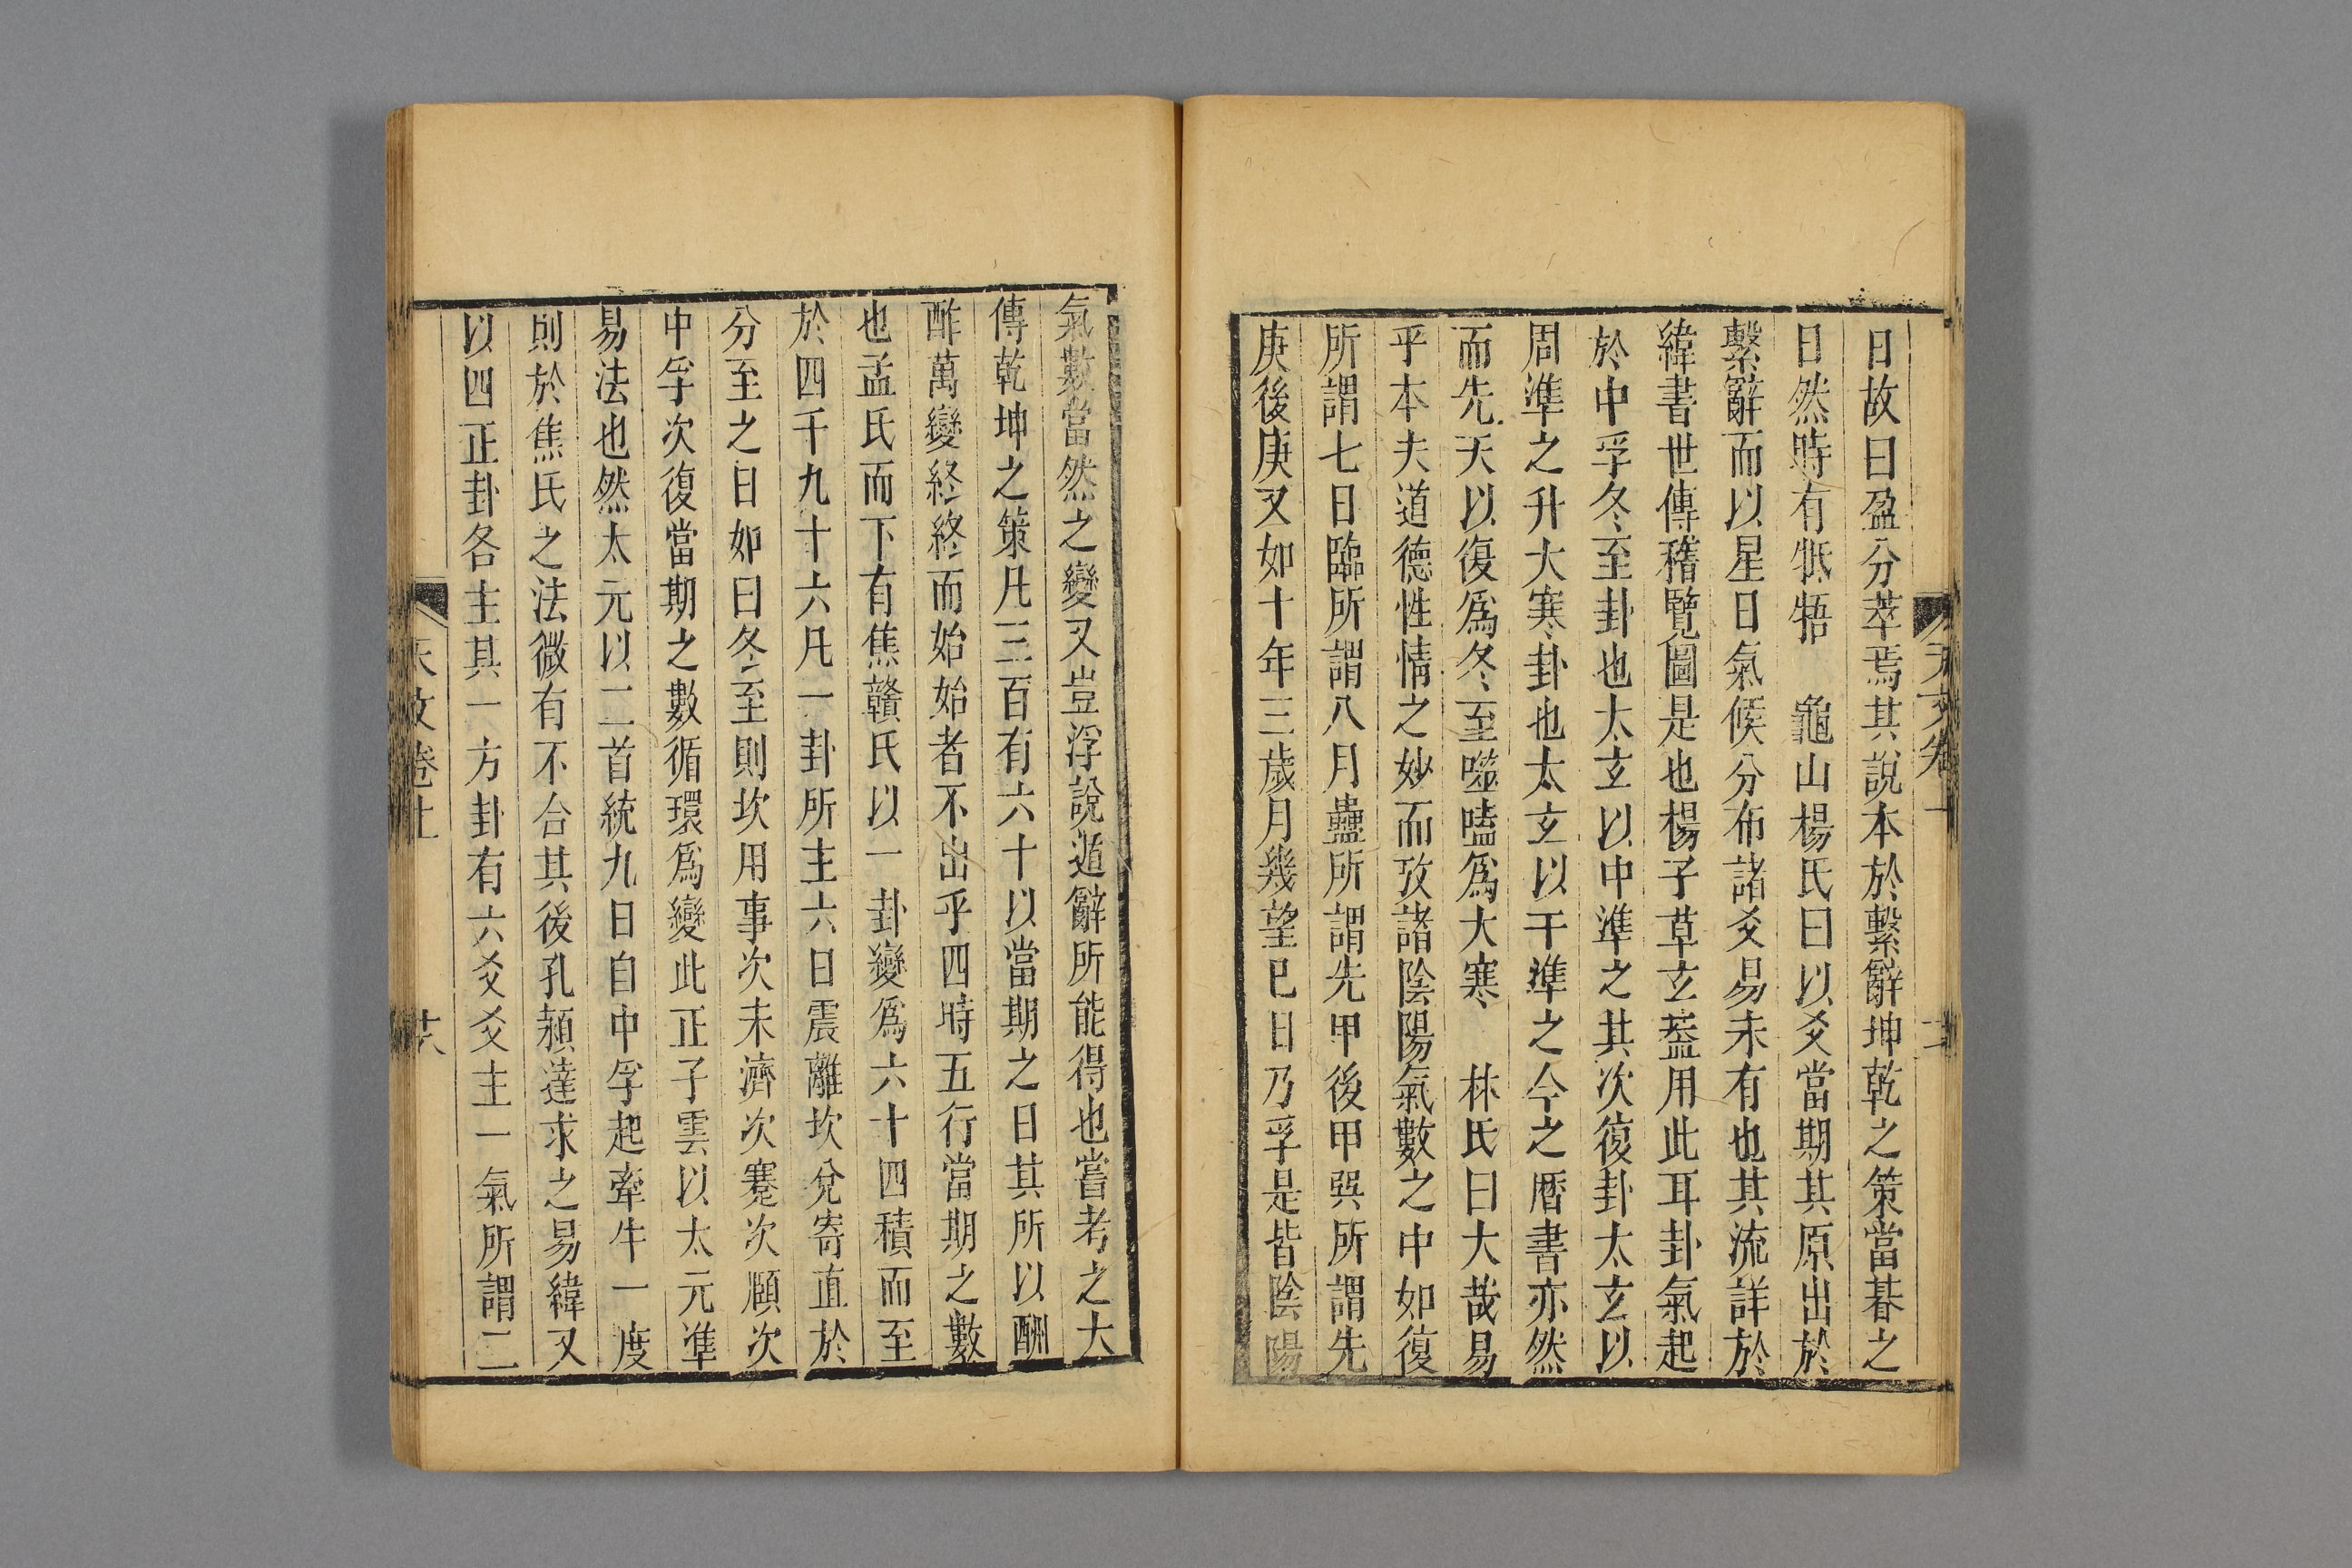 日故曰盈分萃焉其說本於繫辭坤乾之策當朞之
日然時有牴牾　龜山楊氏曰以爻當期其原出於
繫辭而以星日氣候分布諸爻易未有也其流詳於
緯書世傳稽覽圖是也楊子草玄葢用此耳卦氣起
於中孚冬至卦也太玄以中準之其次復卦太玄以
周準之升大寒卦也太玄以干準之今之曆書亦然
而先天以復爲冬至噬嗑爲大寒　林氏曰大哉易
乎本夫道德性情之妙而攷諸陰陽氣數之中如復
所謂七日臨所謂八月蠱所謂先甲後甲巽所謂先
庚後庚又如十年三歲月幾望巳日乃孚是皆陰陽
氣數當然之變又豈浮說遁辭所能得也嘗考之大
傳乾坤之策凡三百有六十以當期之日其所以酬
酢萬變終終而始始者不出乎四時五行當期之數
也孟氏而下有焦贛氏以一卦變爲六十四積而至
於四千九十六凡一卦所主六日震離坎兌寄直於
分至之日如曰冬至則坎用事次未濟次蹇次頤次
中孚次復當期之數循環爲變此正子雲以太元準
易法也然太元以二首統九日自中孚起牽牛一度
則於焦氏之法微有不合其後孔頴達求之易緯又
以四正卦各主其一方卦有六爻爻主一氣所謂二
天文卷十